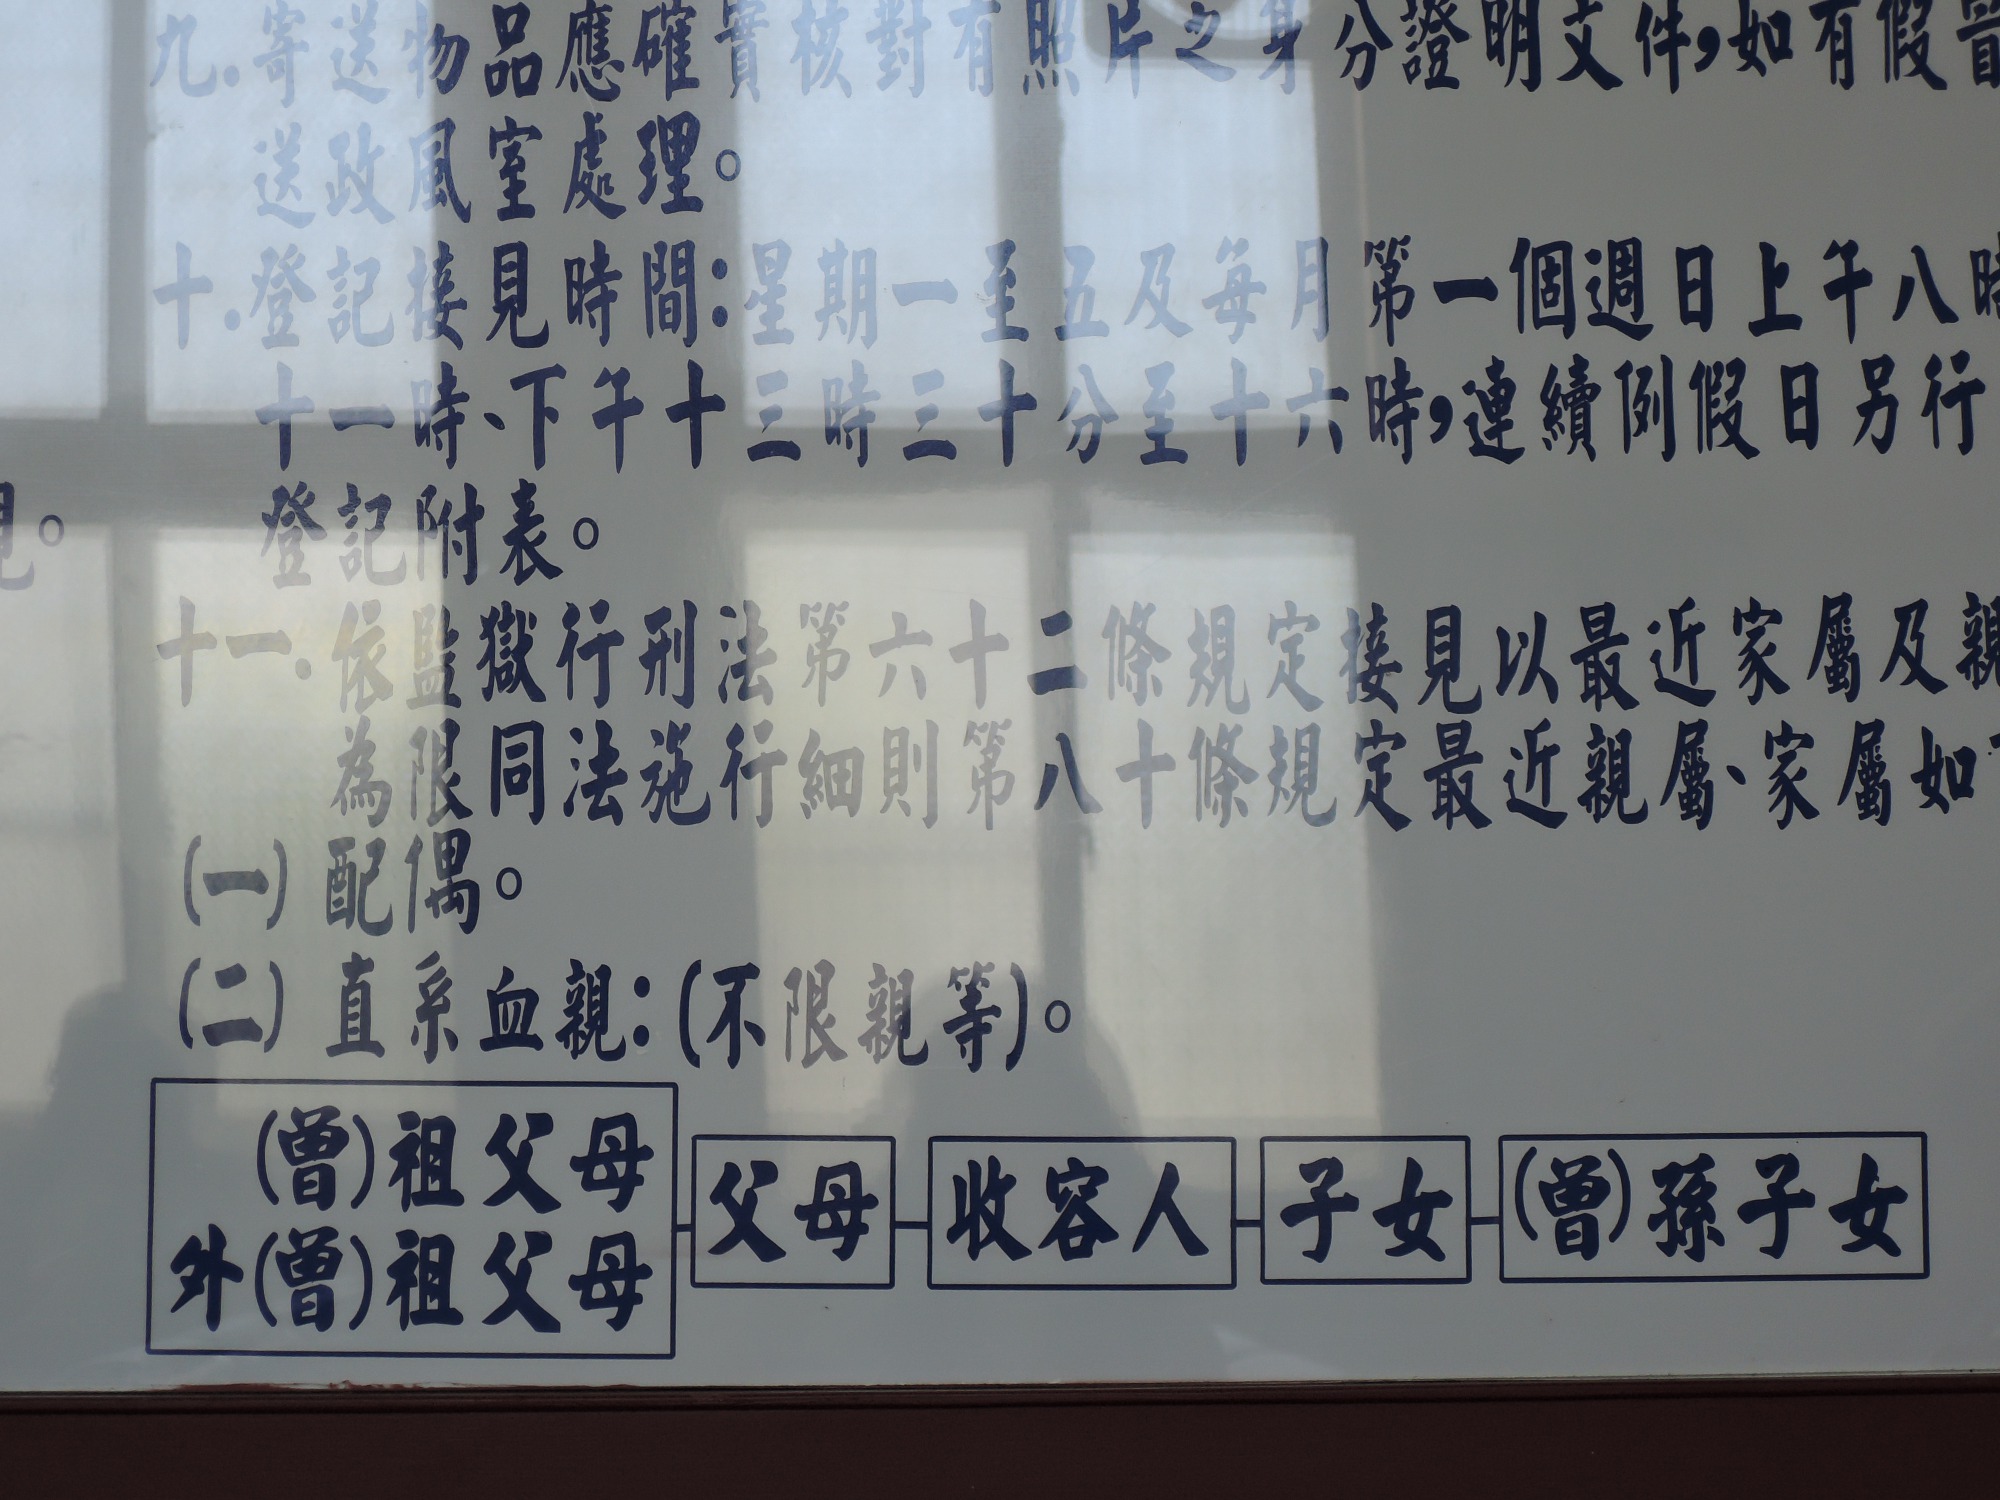 九.寄送物品應確實核對有照片之身分證明文件,如有假冒
送政風室處理。
十.登記接見時間:星期一至五及每月第一個週日上午八時
十一時、下午十三時三十分至十六時,連續例假日另行
登記附表。
見。
十一.依監獄行刑法第六十二條規定接見以最近家屬及親
為限同法施行細則第八十條規定最近親屬、家屬如
(一)配偶。
(二)直系血親:(不限親等)。
(曾)祖父母
外(曾)祖父母
父母
收容人
子女
(曾)孫子女